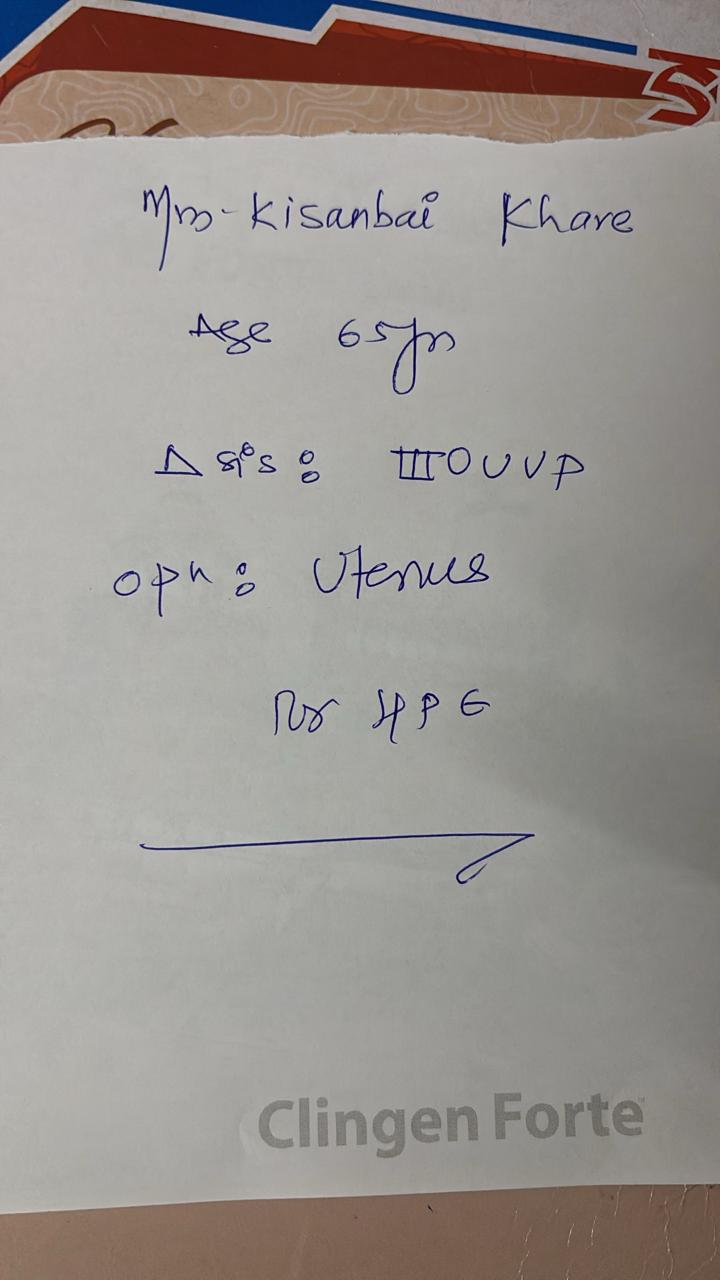 Mrs - Kisanbai Khare
Age 65yrs
Δ sis : III O U V P
opn : Uterus
for HPE
Clingen Forte